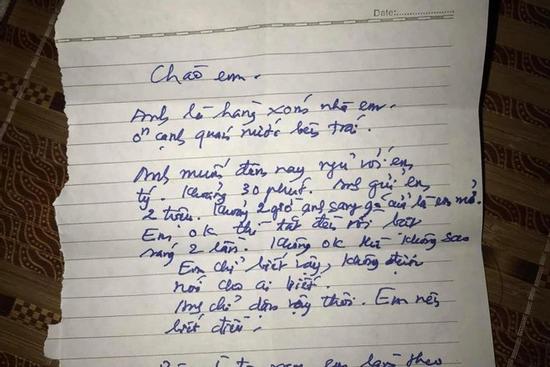 Date:
Chào em.
Anh là hàng xóm nhà em.
ở cạnh quán nước bên trái.
Anh muốn đêm nay ngủ với em
tý. Khoảng 30 phút. Anh gửi em
2 triệu. Khoảng 2 giờ anh sang gõ cửa là em mở.
Em ok thì tắt đèn rồi bật
sáng 2 lần. Không ok thì không sao
Em chỉ biết vậy, không được
nói cho ai biết.
Anh chỉ dặn vậy thôi. Em nên
biết điều.
theo